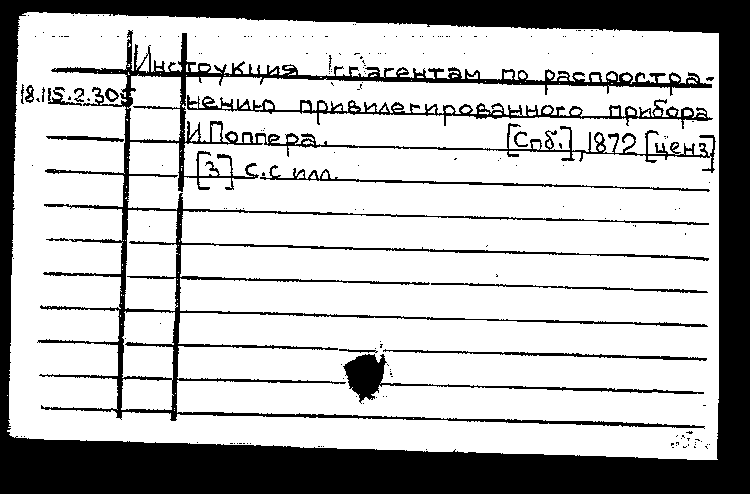 Инструкция гг. агентам по распростра-
18.115.2.305
нению привилегированного прибора
И.Поппера. [Спб.], 1872 [ценз]
[3] с.с илл.